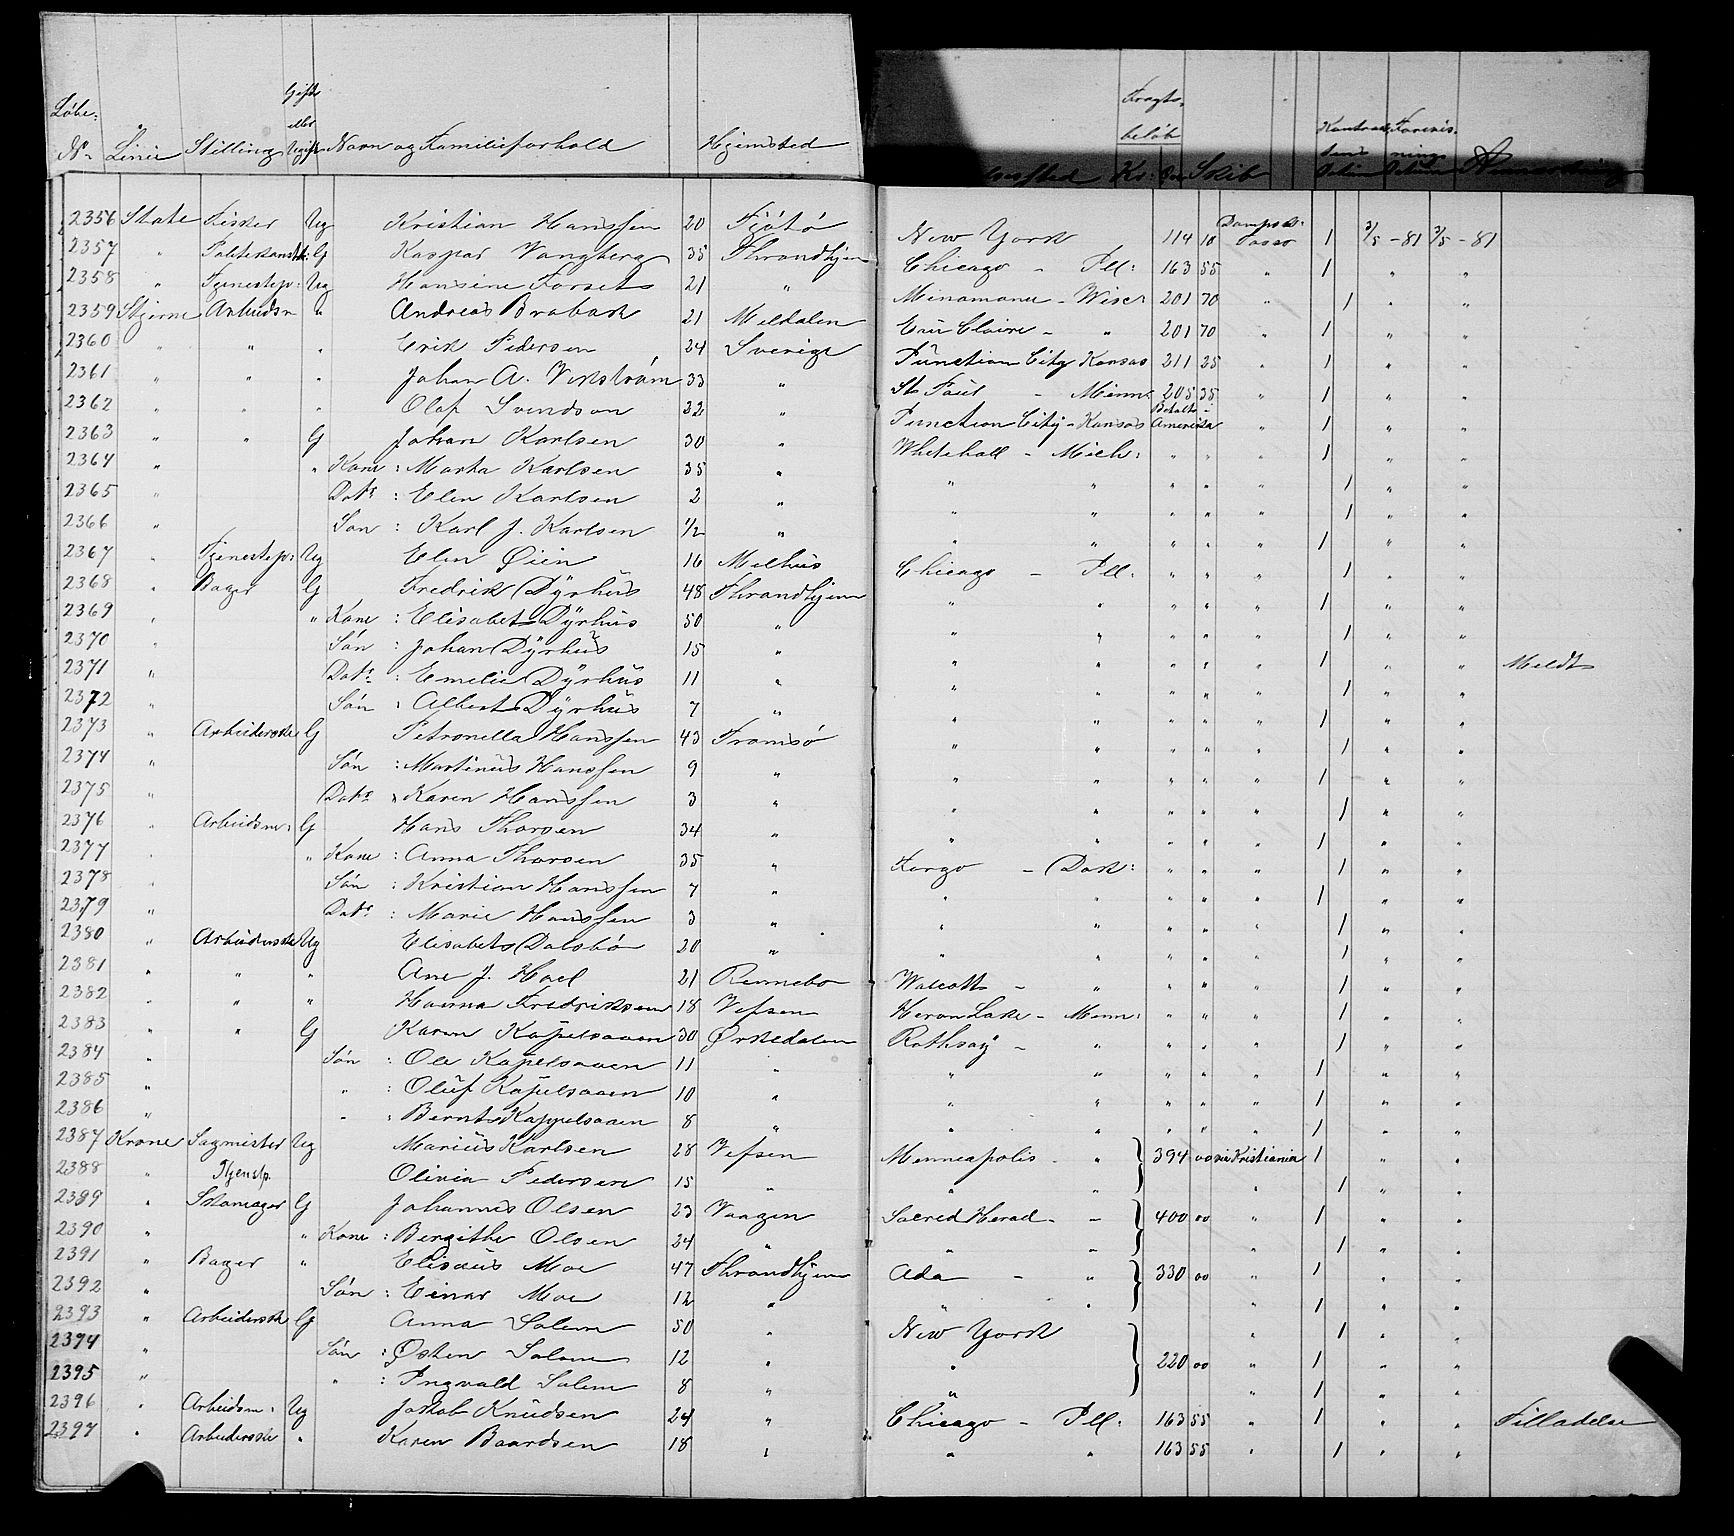 Løbe: No. Linie Stilling Gift eller Ugift Navn og Familieforhold Hjemsted Fragtbeløb Kr: Øre Skib Anmærkning
2356 State Fisker Ug Kristian Hanssen 20 Fjötö New York 114 10 Dampsk: Tasso 1 3/5 - 81 3/5 - 81
2357 " G Kaspar Vangberg 35 Throndhjem Chicago - Ill: 163 55 " 1 " "
2358 " Tjenestep: Ug Hansine Forset 21 " - Wisc: 201 70 " 1 " "
2359 Stjerne Arbeidsm " Andreas Brabak 21 Meldalen Eau Claire - " 201 70 1 " "
2360 " " " Erik Pedersen 24 Sverige Junction City Kansas 211 25 " 1 " "
2361 " " " Johan A. Vikström 33 " St Paul - Minn: 205 35 " 1 " "
2362 " " " Olof Svendson 32 " Junction City - Kansas Betalt i Amerika " 1 " "
2363 " " G Johan Karlsen 30 " Whitehall - Mich: " " " 1 " "
2364 " " Kone : Marta Karlsen 35 " " " " " " 1 " "
2365 " Datr : Elen Karlsen 2 " " " " " " 1 " "
2366 " Søn : Karl J. Karlsen 1/2 " " " " " " 1 " "
2367 " Tjenestep: Ug Elen Øien 16 Melhus Chicago - Ill: " " " 1 " "
2368 " Bager G Fredrik Dÿrhus 48 Throndhjem " " " " " 1 " "
2369 " " Kone : Elisabet Dÿrhus 50 " " " " " " 1 " "
2370 " Søn : Johan Dÿrhus 15 " " " " " " 1 " " Meldt
2371 " Datr : Emelie Dÿrhus 11 " " " " " " 1 " "
2372 " Søn : Albert Dÿrhus 7 " " " " " " 1 " "
2373 " Arbeiderske G Petronella Hanssen 43 Tromsö " " " " " 1 " "
2374 " Søn : Martinus Hanssen 9 " " " " " " 1 " "
2375 " Datr : Karen Hanssen 3 " " " " " " 1 " "
2376 " Arbeidsm: G Hans Thorsen 34 " " " " " " 1 " "
2377 " " Kone : Anna Thorsen 35 " Fargo - Dak: " " " 1 " "
2378 " Søn : Kristian Hanssen 7 " " " " " " 1 " "
2379 " Datr : Marie Hanssen 3 " " " " " " 1 " "
2380 " Arbeiderske Ug Elisabet Dalsbö 20 " " " " " " 1 " "
2381 " " " Ane J. Hoel 21 Rennebo Walcott - " " " " 1 " "
2382 " " " Hanna Fredriksen 18 Vefsen Heron Lake - Minn: " " " 1 " "
2383 " " G Karen Kapelsaaen 30 Ørkedalen Rothsay - " " " " 1 " "
2384 " Søn : Ole Kapelsaaen 11 " " " " " " 1 " "
2385 " " : Oluf Kapelsaaen 10 " " " " " " 1 " "
2386 " " : Bernt Kappelsaaen 8 " " " " " " 1 " "
2387 Krone Sagmester Ug Marius Karlsen 28 Vefsen Minneapolis - " 394 00 via Kristiania 1 " "
2388 " Tjenstp. Olivia Pedersen 15 " " " " 1 " "
2389 " Skomager G Johannes Olsen 23 Vaagen Sacred Herad - " 400 00 " 1 " "
2390 " " Kone : Bergithe Olsen 24 " " " " 1 " "
2391 " Bager " Elisæus Moe 47 Throndhjem Ada - " 330 00 " 1 " "
2392 " Søn : Einar Moe 12 " " " " 1 " "
2393 " Arbeiderske G Anna Solem 50 " New York " 1 " "
2394 " Søn : Østen Solem 12 " " 220 00 " 1 " "
2395 " " : Ingvald Solem 8 " " " 1 " "
2396 " Arbeidsm: Ug Jakob Knudsen 24 " Chicago - Ill: 163 55 " 1 " " Tilladelse
2397 " Arbeiderske " Karen Baardsen 18 " " " 163 55 " 1 " "